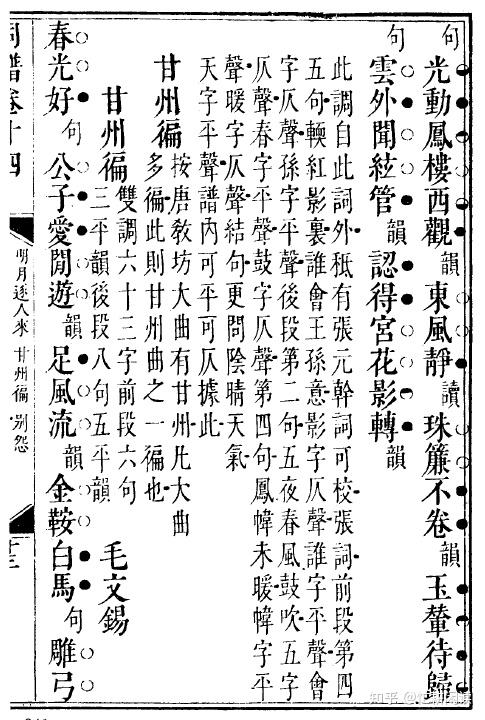 句光動鳳樓西觀韻東風靜讀珠簾不卷韻玉輦待歸
句雲外聞絃管韻認得宮花影轉韻
此調自此詞外秪有張元幹詞可校張詞前段第四
五句輭紅影裏誰會王孫意影字仄聲誰字平聲會
字仄聲孫字平聲後段第二句五夜春風鼓吹五字
仄聲春字平聲鼓字仄聲第四句鳳幃未暖幃字平
聲暖字仄聲結句更問陰晴天氣
天字平聲譜內可平可仄據此
甘州徧按唐教坊大曲有甘州凡大曲
多徧此則甘州曲之一徧也
甘州徧雙調六十三字前段六句
三平韻後段八句五平韻毛文錫
春光好句公子愛閒遊韻足風流韻金鞍白馬句雕弓
詞譜卷十四
明月逐人來 甘州徧 別怨
十三
知乎